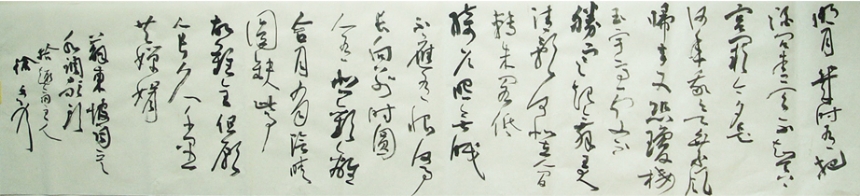 明月幾时有把
酒问青天不知天上
宫阙今夕是
何年我欲乘风
歸去又恐瓊樓
玉宇高处不
勝寒起舞弄
清影何似在人间
轉朱阁低
绮户照无眠
不應有恨何事
长向别时圆
人有悲歡離
合月有陰晴
圆缺此事
古難全但願
人长久千里
共嬋娟
蘇東坡词之
水调歌头
主人
徐